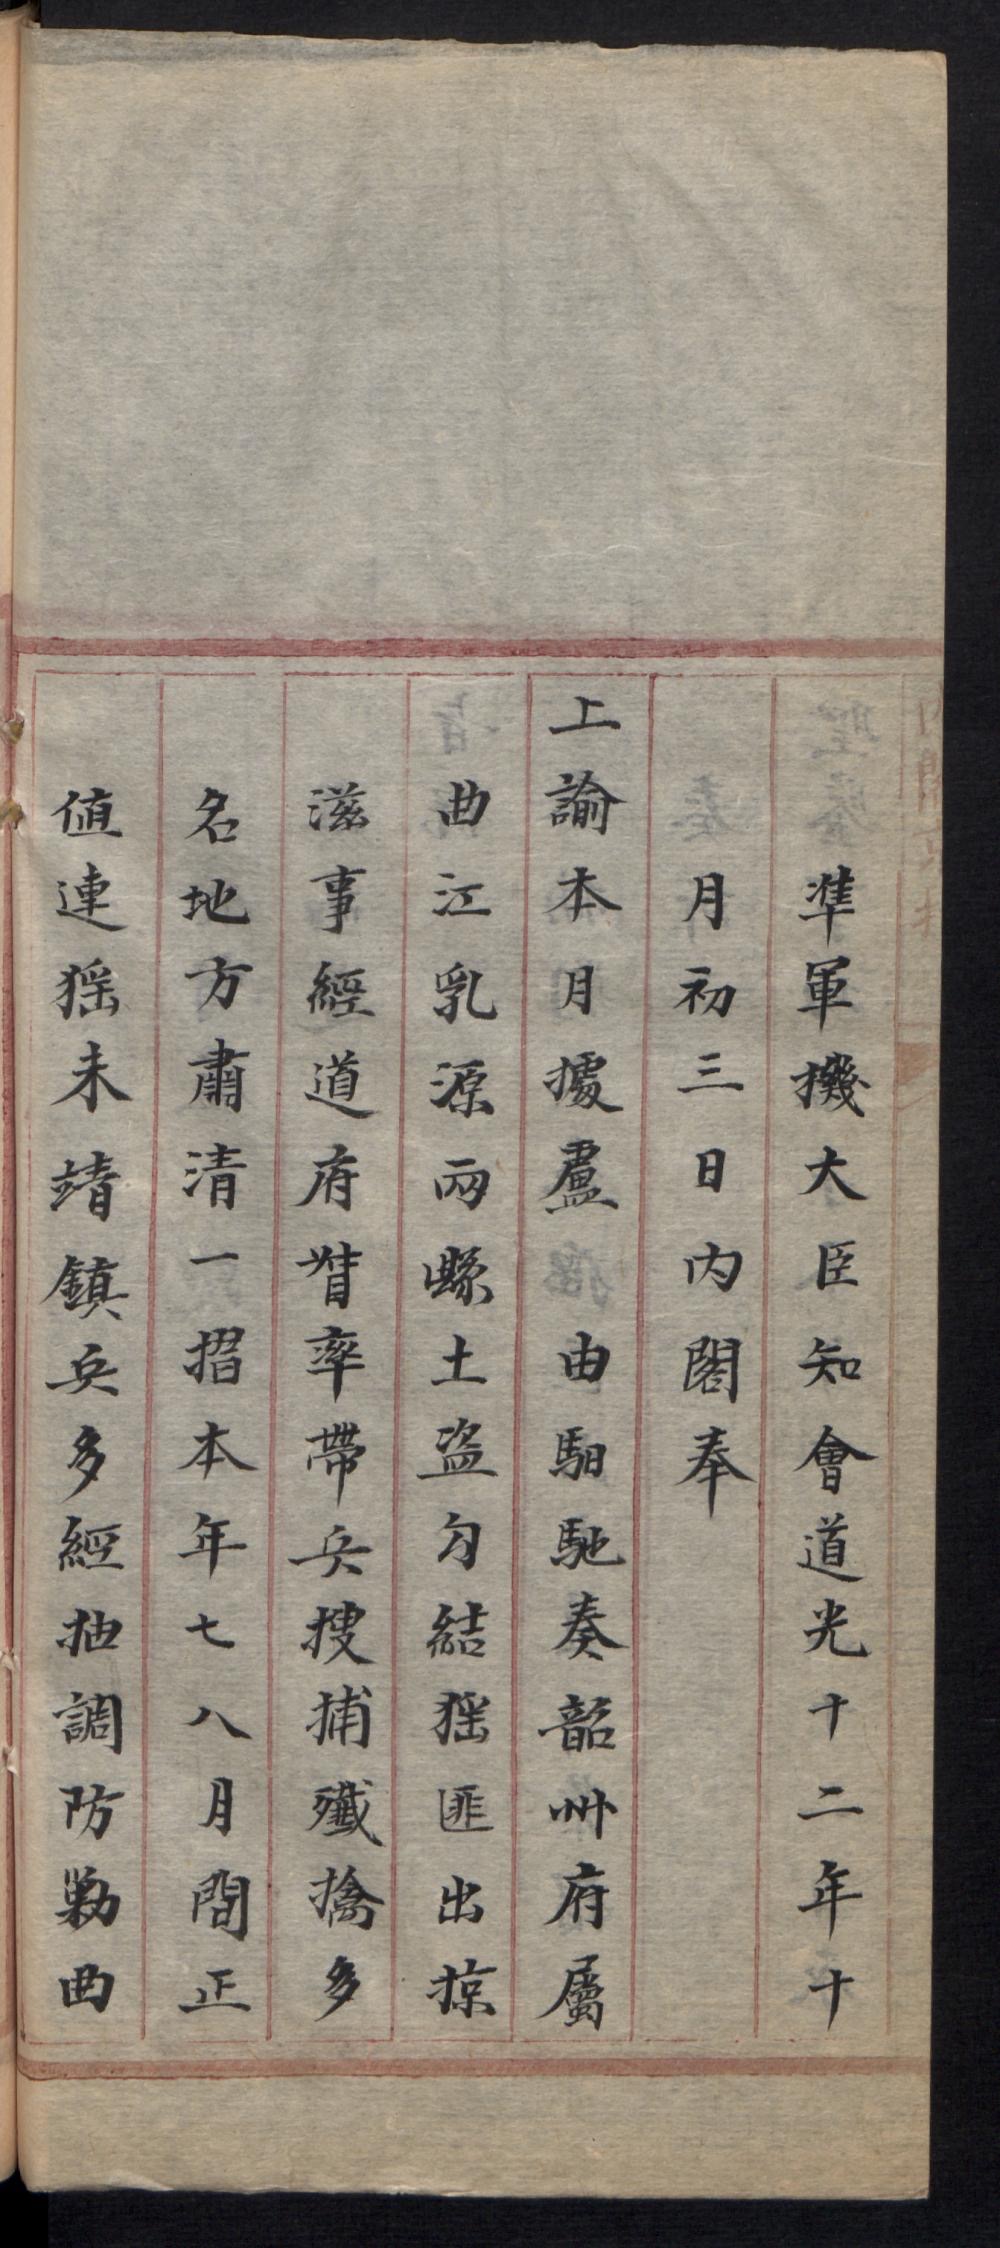 準軍機大臣知會道光十二年十
月初三日內閣奉
上諭本月據盧由馹馳奏韶州府屬
曲江乳源兩縣土盜勾結猺匪出掠
滋事經道府督率帶兵搜捕殲擒多
名地方肅清一摺本年七八月間正
值連猺未靖鎮兵多經抽調防勦曲